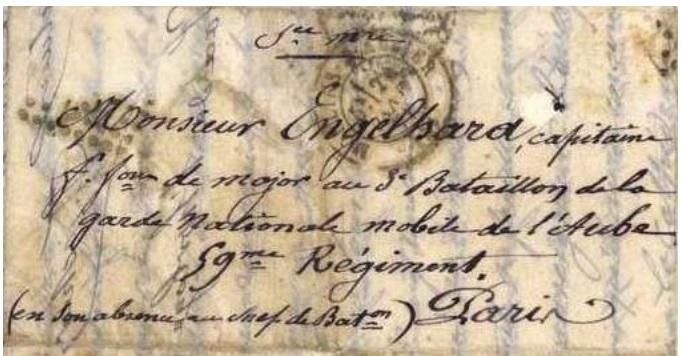 Sce mre
Monsieur Engelhard, capitaine
f. fons de major au 3e Bataillon de la
garde Nationale mobile de l'Aube
59me Régiment.
(en son absence au chef de Baton) Paris